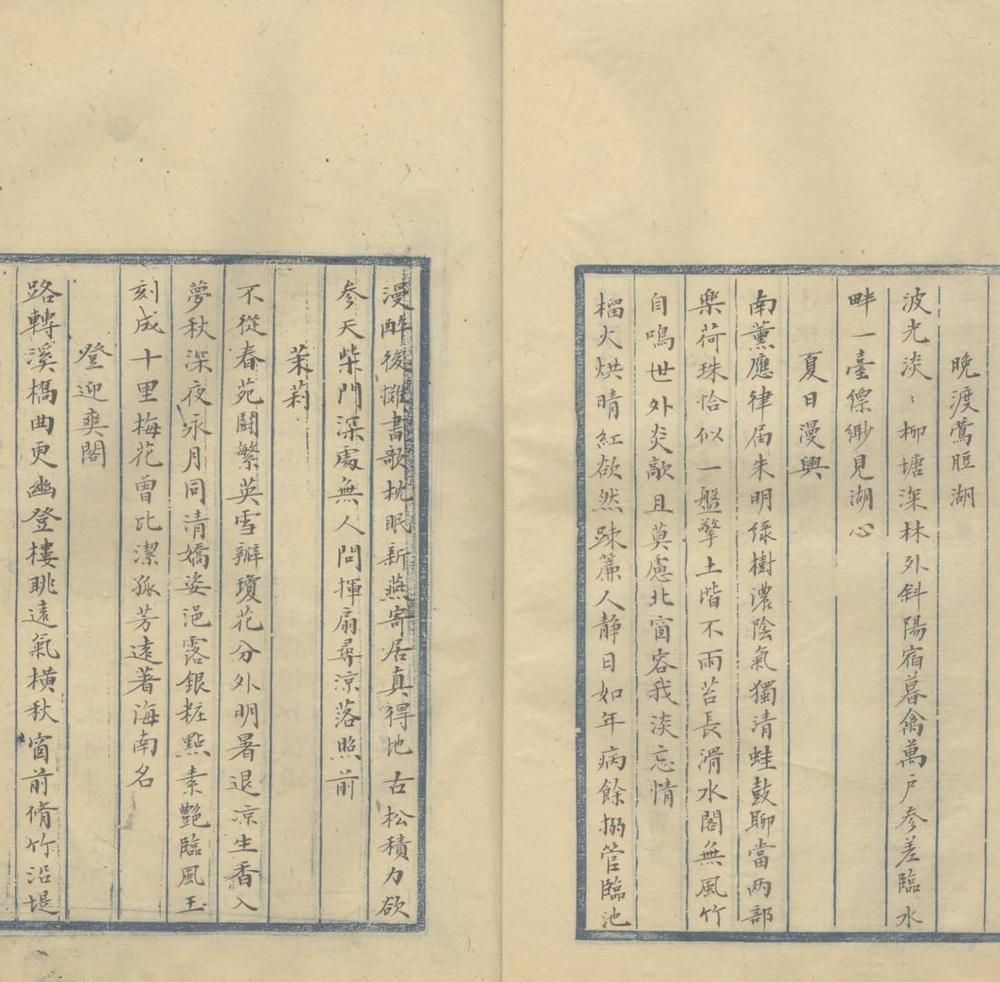 晚渡鶯脰湖
波光淡〻柳塘深林外斜陽宿暮禽萬戶參差臨水
畔一臺縹緲見湖心
夏日漫興
南薰應律届朱明綠樹濃陰氣獨清蛙鼓聊當兩部
樂荷珠恰似一盤擎土堦不雨苔長滑水閣無風竹
自鳴世外炎歊且莫慮北窗容我淡忘情
榴火烘晴紅欲然疎簾人静日如年病餘搦管臨池
漫醉後攤書歌枕眠新燕寄居真得地古松積力欲
参天柴門深處無人問揮扇尋凉落照前
茉莉
不從春苑鬪繁英雪瓣瓊花分外明暑退凉生香入
夢秋深夜永月同清嬌姿浥露銀粧點素艶臨風玉
刻成十里梅花曾比潔孤芳遠著海南名
登迎爽閣
路轉溪橋曲更幽登樓眺遠氣橫秋窗前脩竹沿堤